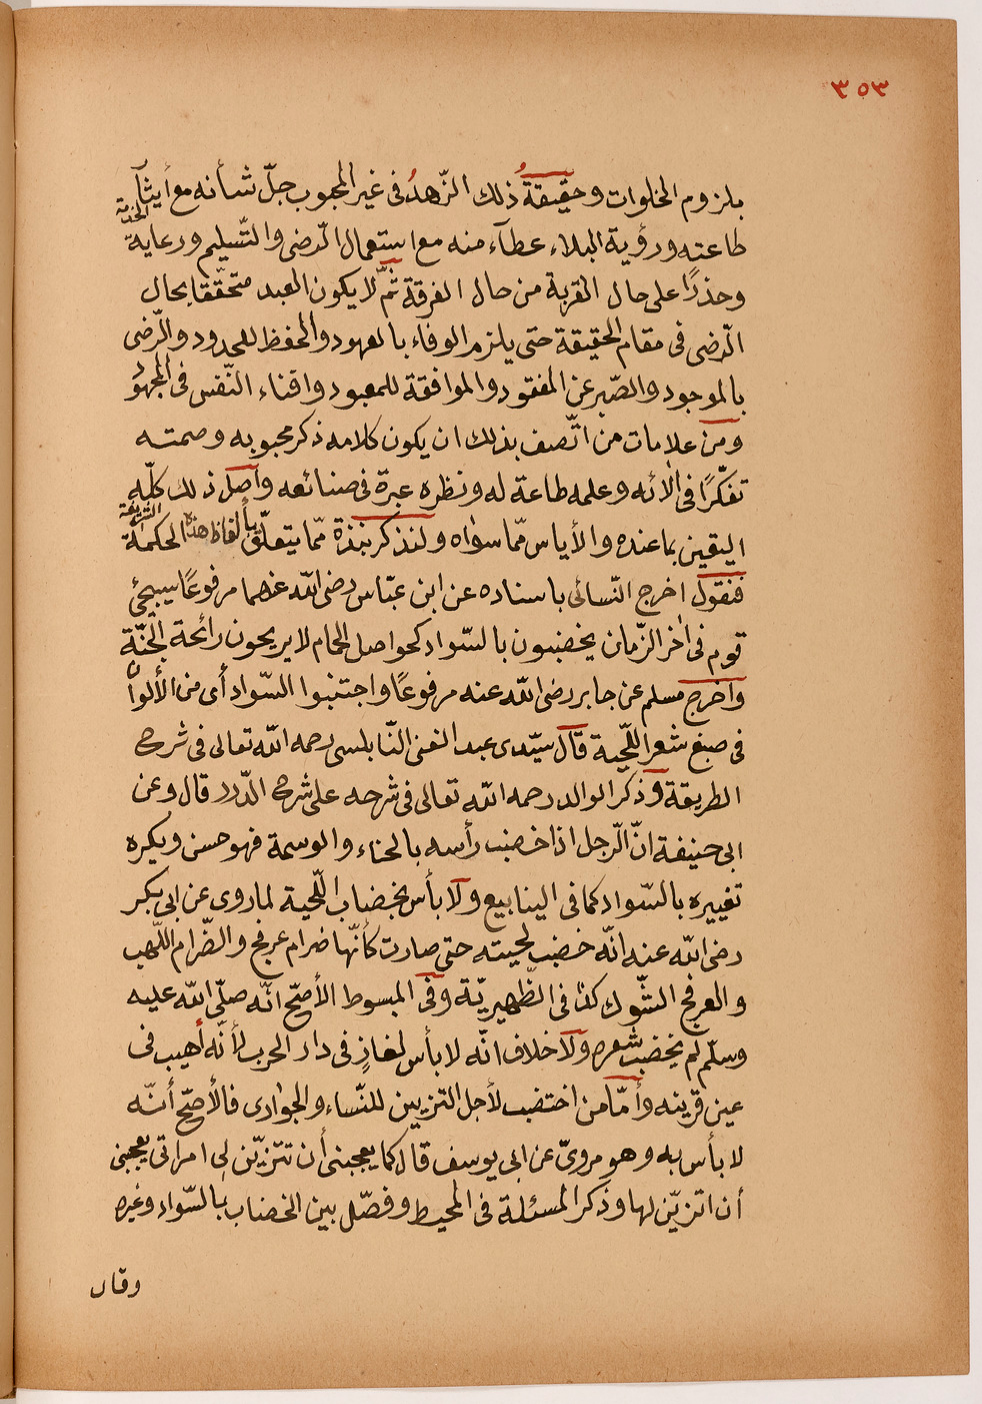 ٣٥٣
بلزوم الخلوات وحقيقةُ ذلك الزّهدُ فى غير المحبوب جلّ شأنه مع أيثار
طاعته ورؤية البلاء عطآء منه مع استعمال الرّضى والتّسليم ورعاية الخدمة
وحذرًا على حال القربة من حال الفرقة ثمّ لا يكون العبد متحقّقا بحال
الرّضى فى مقام الحقيقة حتى يلزم الوفاء بالعهود والحفظ للحدود والرّضى
بالموجود والصّبر عن المفقود والموافقة للمعبود وافناء النّفس فى المجهود
ومن علامات من اتّصف بذلك ان يكون كلامه ذكر محبوبه وصمته
تفكّرًا فى الائه وعلمه طاعة له ونظره عبرة فى صنائعه وأصل ذلك كلّه
اليقين بما عنده والأياس ممّا سواه ولنذكر نبذة ممّا يتعلّق بألفاظ هذه الحكمة الشريفة
فنقول اخرج النّسائى باسناده عن ابن عبّاس رضى الله عنهما مرفوعًا سيجئ
قوم فى اٰخر الزّمان يخضبون بالسّواد كحواصل الحمام لا يريحون رائحة الجّنّة
واخرج مسلم عن جابر رضى الله عنه مرفوعًا واجتنبوا السّواد أى من الألوان
فى صبغ شعر اللّحية قال سيّدى عبد الغنى النّابلسى رحمه الله تعالى فى شرح
الطريقة وذكر الوالد رحمه الله تعالى فى شرحه على شرح الدّرر قال وعن
ابى حنيفة انّ الرّجل اذا خضب رأسه بالحناء والوسمة فهو حسن ويكره
تغييره بالسّواد كما فى الينابيع ولا بأس بخضاب اللّحية لما روى عن ابى بكر
رضى الله عنه انّه خضب لحيته حتى صارت كأنّها ضرام عرفج والضّرام اللّهب
والعرفج الشّوك كذا فى الظّهيريّة وفى المبسوط الأصحّ انّه صلّى الله عليه
وسلّم لم يخضب شعره ولا خلاف انّه لا بأس لغازٍ فى دار الحرب لأنّه أهيب فى
عين قرينه وأمّا من اختضب لأجل التزيين للنّساء والجوارى فالأصحّ أنّه
لا بأس به وهو مروىّ عن ابى يوسف قال كما يعجبنى أن تتزيّن لى امراتى يعجبنى
أن اتزيّن لها وذكر المسئلة فى المحيط وفصّل بين الخضاب بالسّواد وغيره
وقال